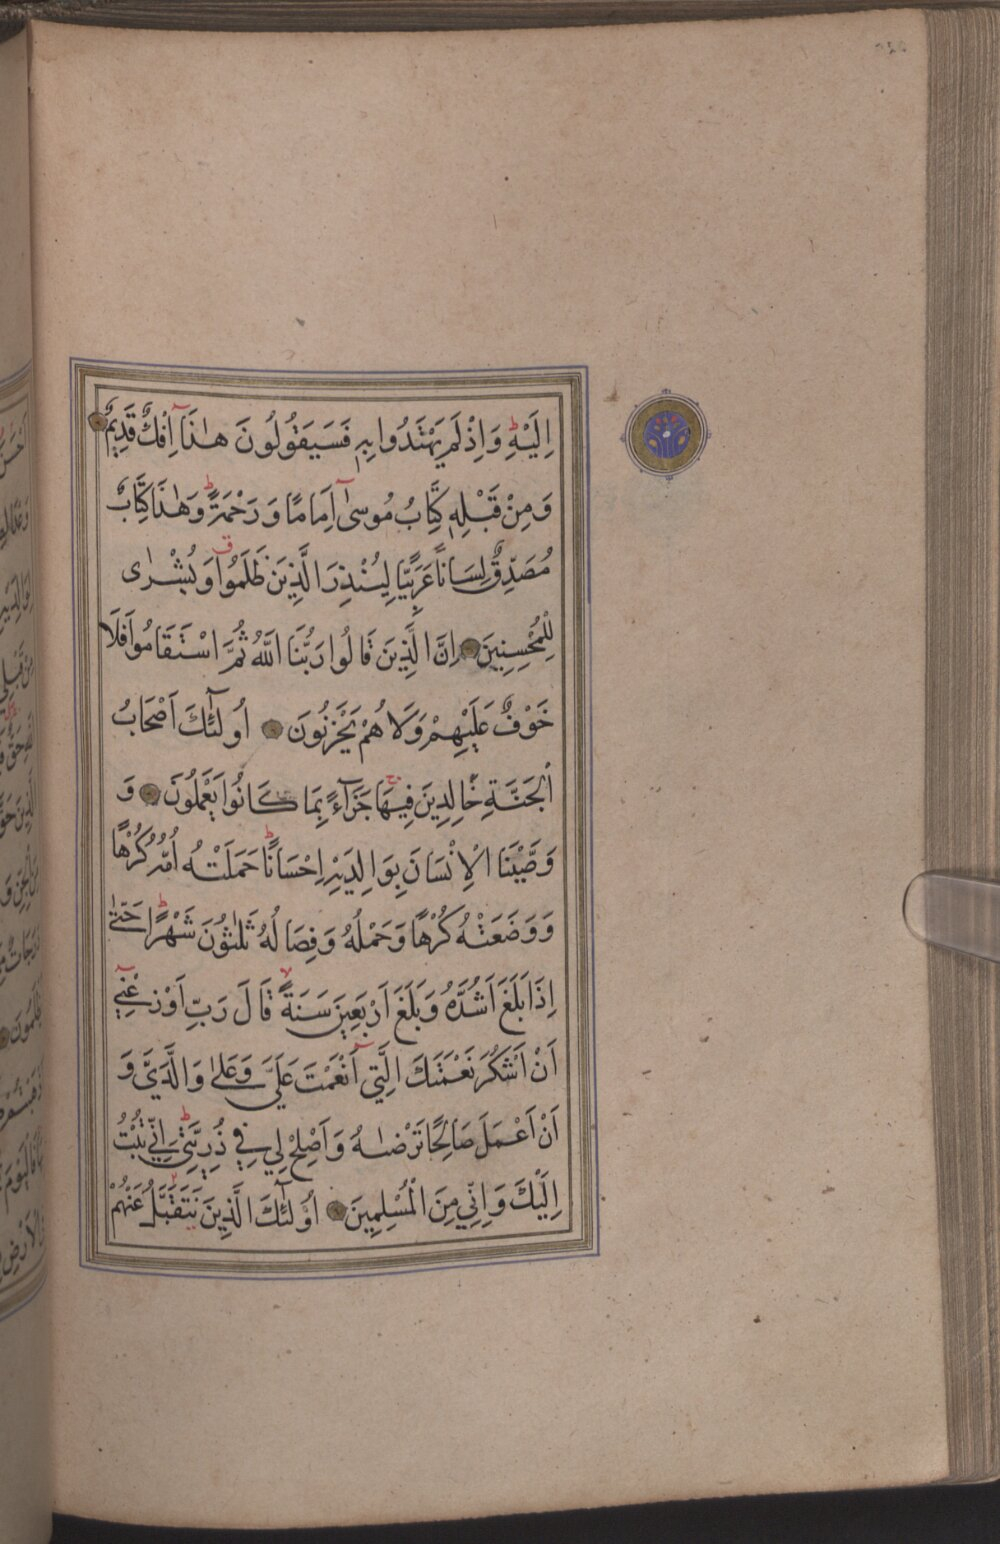 اِلَيْهِ وَاِذْ لَمْ يَهْتَدُوا بِهٖ فَسَيَقُولُونَ هٰذَٓا اِفْكٌ قَدِيمٌ
وَمِنْ قَبْلِهٖ كِتَابُ مُوسٰٓى اِمَامًا وَرَحْمَةً وَهٰذَا كِتَابٌ
مُصَدِّقٌ لِسَانًا عَرَبِيًّا لِيُنْذِرَ الَّذِينَ ظَلَمُوا وَبُشْرٰى
لِلْمُحْسِنِينَ اِنَّ الَّذِينَ قَالُوا رَبُّنَا اللّٰهُ ثُمَّ اسْتَقَامُوا فَلَا
خَوْفٌ عَلَيْهِمْ وَلَا هُمْ يَحْزَنُونَ اُولٰٓئِكَ اَصْحَابُ
الْجَنَّةِ خَالِدِينَ فِيهَا جَزَآءً بِمَا كَانُوا يَعْمَلُونَ وَ
وَصَّيْنَا الْاِنْسَانَ بِوَالِدَيْهِ اِحْسَانًا حَمَلَتْهُ اُمُّهُ كُرْهًا
وَوَضَعَتْهُ كُرْهًا وَحَمْلُهُ وَفِصَالُهُ ثَلٰثُونَ شَهْرًا حَتّٰٓى
اِذَا بَلَغَ اَشُدَّهُ وَبَلَغَ اَرْبَعِينَ سَنَةً قَالَ رَبِّ اَوْزِعْنِٓي
اَنْ اَشْكُرَ نِعْمَتَكَ الَّتِٓي اَنْعَمْتَ عَلَيَّ وَعَلٰى وَالِدَيَّ وَ
اَنْ اَعْمَلَ صَالِحًا تَرْضٰىهُ وَاَصْلِحْ لِي فِي ذُرِّيَّتِي اِنِّي تُبْتُ
اِلَيْكَ وَاِنِّي مِنَ الْمُسْلِمِينَ اُولٰٓئِكَ الَّذِينَ نَتَقَبَّلُ عَنْهُمْ